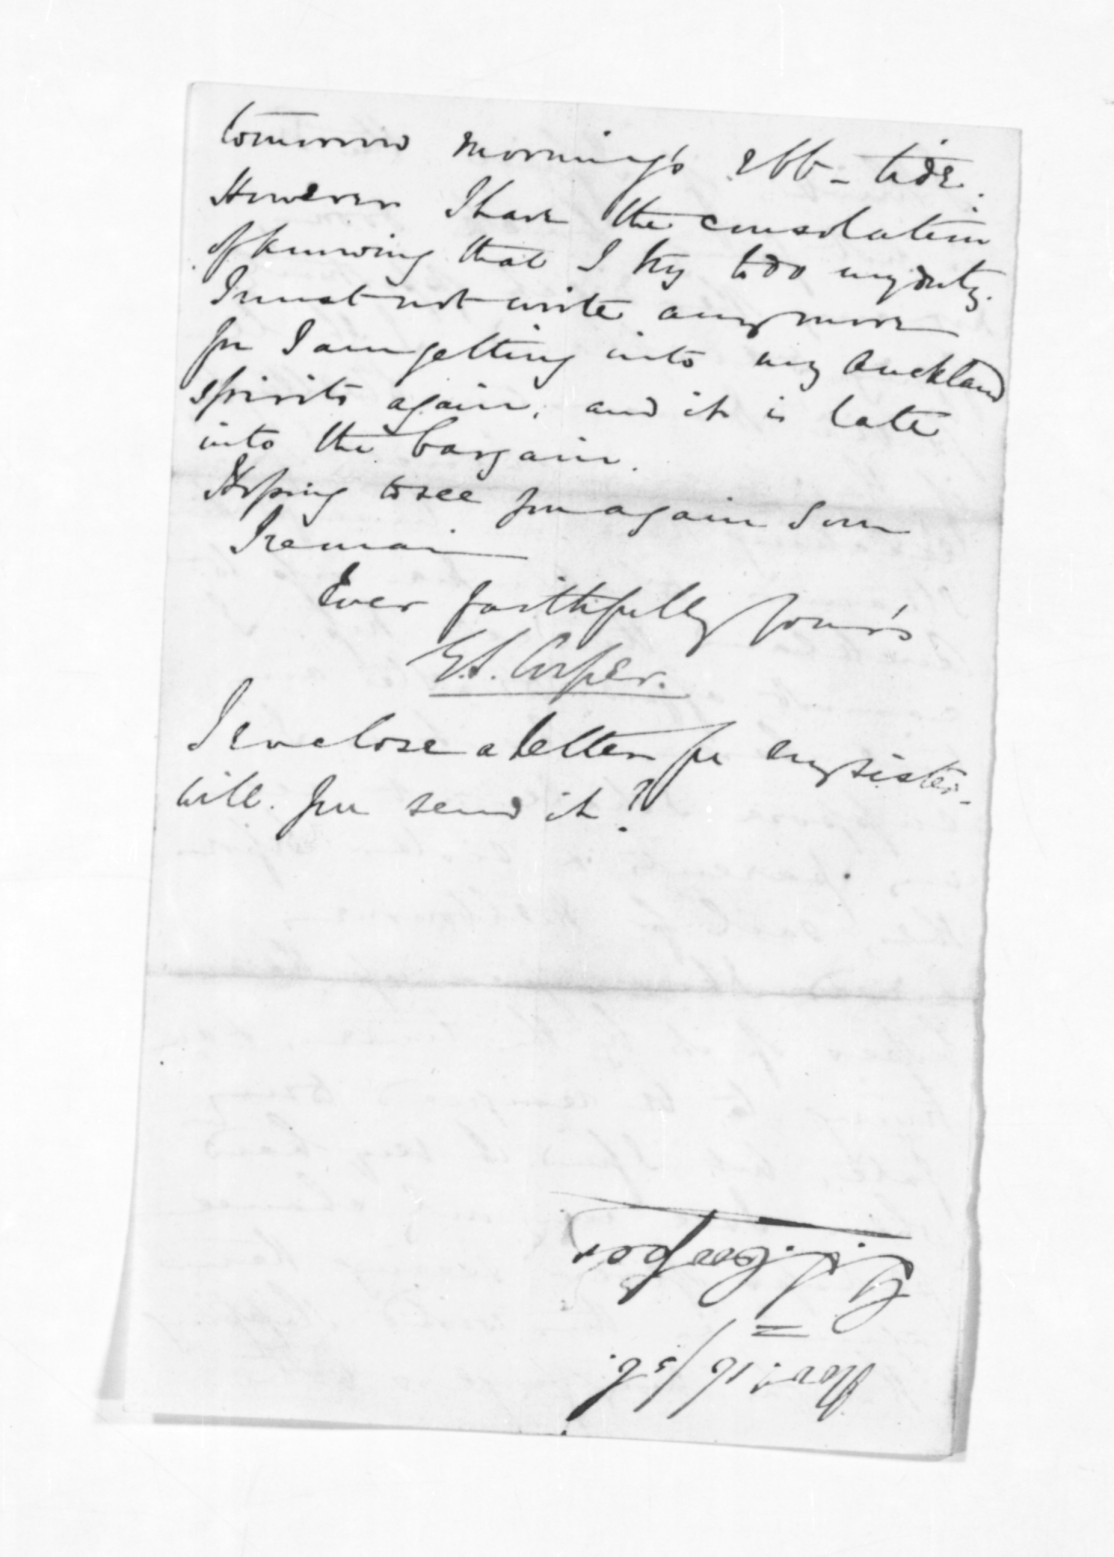 tomorrow morning's ebb-tide.
However I have the consolation
of knowing that I try to do my duty.
I must not write any more
for I am getting into my Auckland
spirits again, and it is late
into the bargain.
Hoping to see you again soon
I remain
Ever faithfully your's
G.S. Cooper.
I enclose a letter for my sister.
will you send it?
G.S. Cooper
Nov. 16/56.